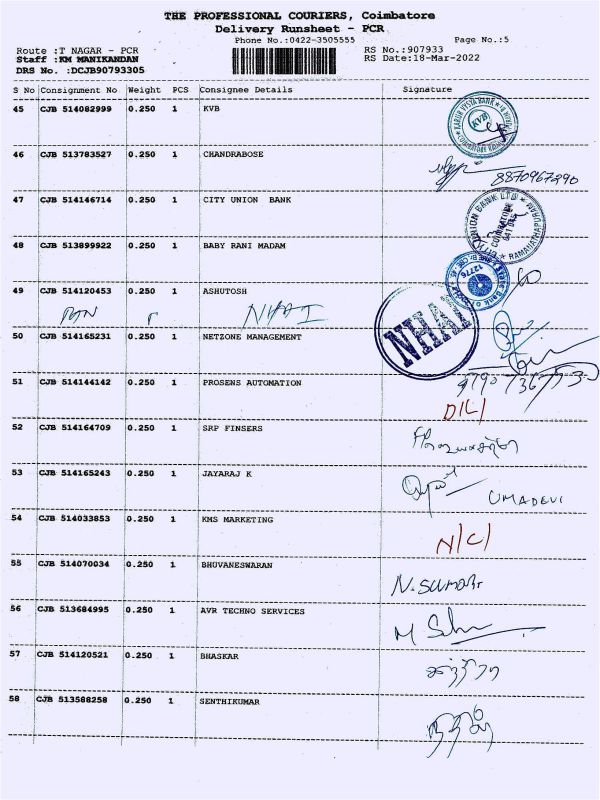 THE PROFESSIONAL COURIERS, Coimbatore
Delivery Runsheet - PCR
Phone No.:0422-3505555 Page No.:5
Route :T NAGAR - PCR RS No.:907933
Staff :KM MANIKANDAN RS Date:18-Mar-2022
DRS No. :DCJB90793305
S No Consignment No Weight PCS Consignee Details Signature
45 CJB 514082999 0.250 1 KVB
KARUR VYSYA BANK
KVB
46 CJB 513783527 0.250 1 CHANDRABOSE
8870967290
47 CJB 514146714 0.250 1 CITY UNION BANK
CITY UNION BANK LTD
COIMBATORE
RAMANATHAPURAM
48 CJB 513899922 0.250 1 BABY RANI MADAM
12776
49 CJB 514120453 0.250 1 ASHUTOSH
NHAI
NHAI
50 CJB 514165231 0.250 1 NETZONE MANAGEMENT
51 CJB 514144142 0.250 1 PROSENS AUTOMATION
D/L/
52 CJB 514164709 0.250 1 SRP FINSERS
53 CJB 514165243 0.250 1 JAYARAJ K
UMADEVI
54 CJB 514033853 0.250 1 KMS MARKETING
N/C/
55 CJB 514070034 0.250 1 BHUVANESWARAN
N. SUMAR
56 CJB 513684995 0.250 1 AVR TECHNO SERVICES
57 CJB 514120521 0.250 1 BHASKAR
58 CJB 513588258 0.250 1 SENTHIKUMAR